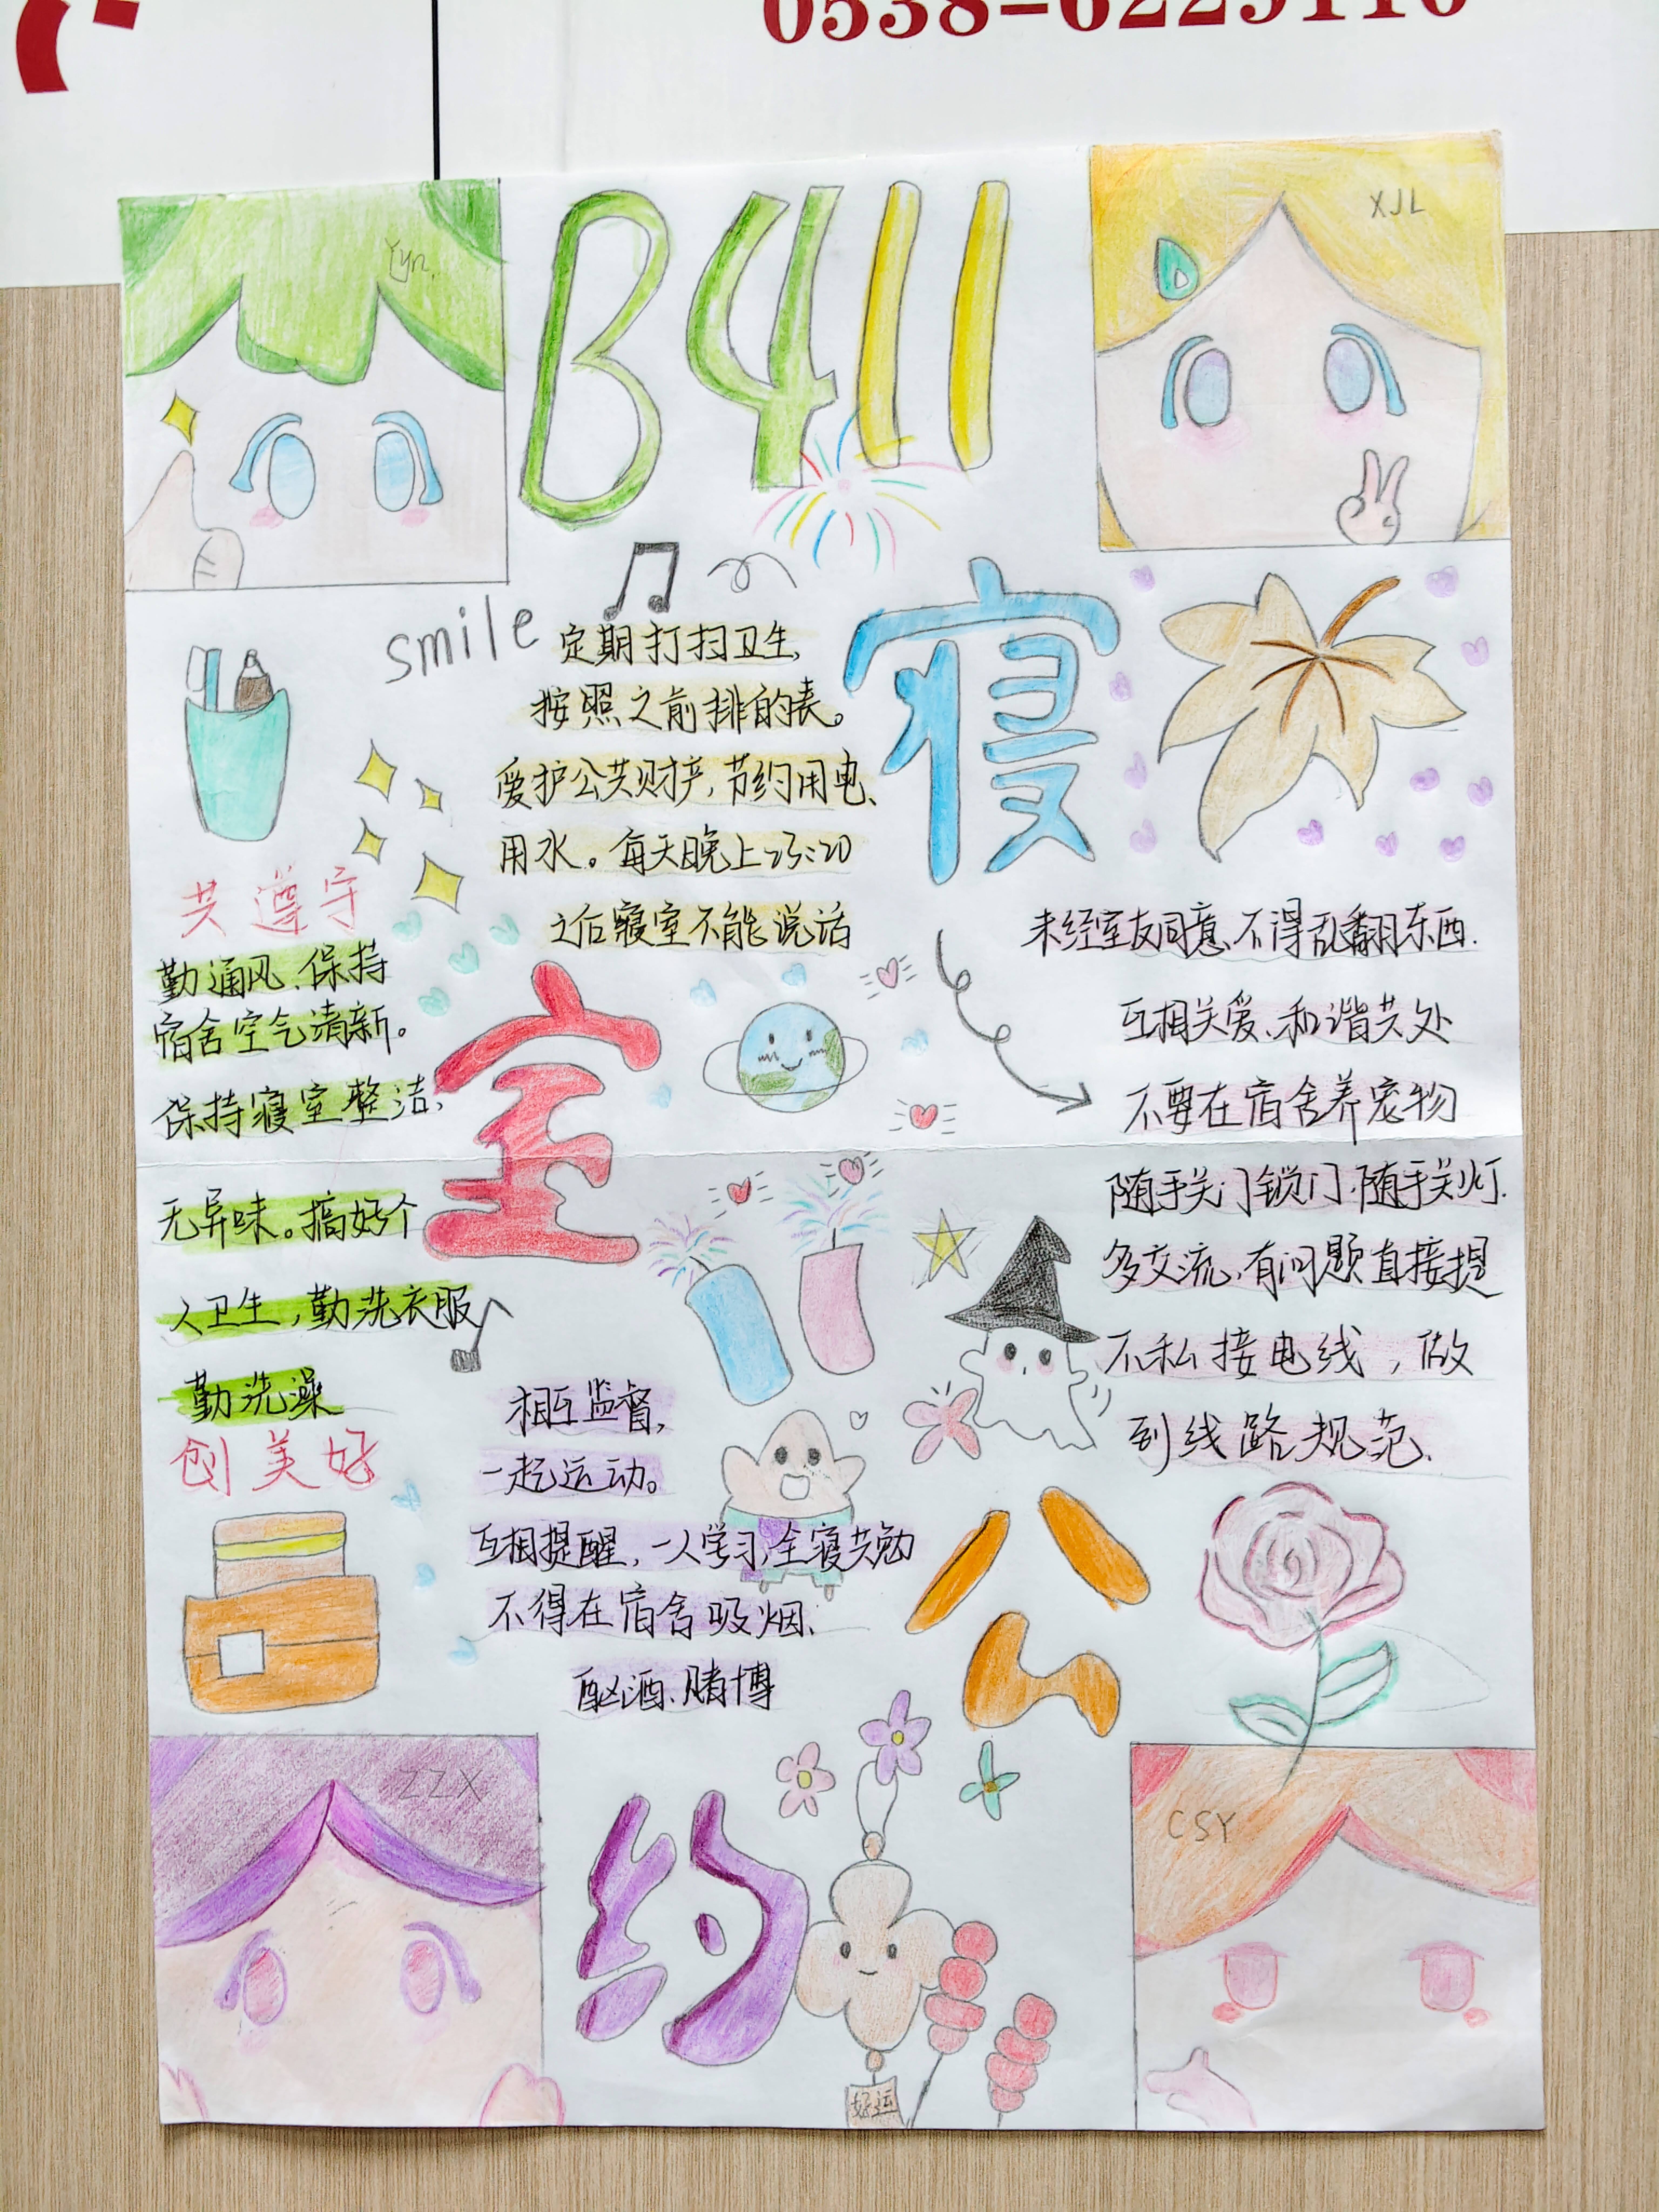 0538-6229116
Yyn.
B411
XJL
smile
定期打扫卫生,
按照之前排的表。
爱护公共财产,节约用电、
用水。每天晚上23:20
之后寝室不能说话
寝
共遵守
勤通风、保持
宿舍空气清新。
保持寝室整洁,
无异味。搞好个
人卫生,勤洗衣服
勤洗澡
创美好
室
未经室友同意,不得乱翻东西.
互相关爱、和谐共处
不要在宿舍养宠物
随手关门锁门,随手关灯.
多交流,有问题直接提
不私接电线,做
到线路规范.
相互监督,
一起运动。
互相提醒,一人学习,全寝共勉
不得在宿舍吸烟、
酗酒、赌博
公
ZZX
约
CSY
好运